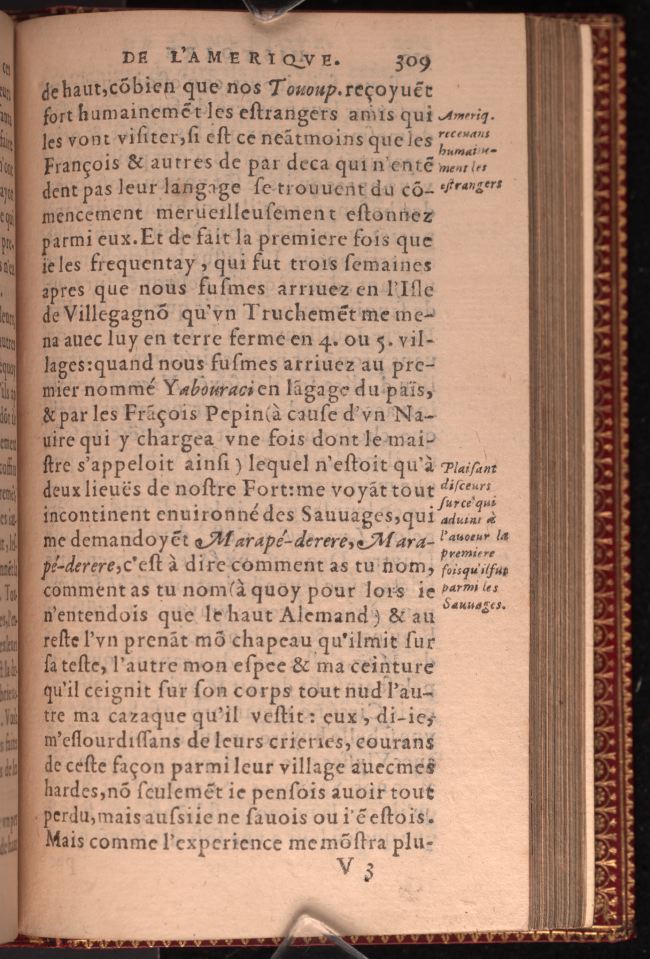 DE L'AMERIQVE. 309
de haut, cõbien que nos Tououp. reçoyuẽt
fort humainemẽt les eſtrangers amis qui
les vont viſiter, ſi eſt ce neãtmoins que les
François & autres de par deca qui n'entẽ
dent pas leur langage ſe trouuent du cõ-
mencement merueilleuſement eſtonnez
parmi eux. Et de fait la premiere fois que
ie les frequentay, qui fut trois ſemaines
apres que nous fuſmes arriuez en l'Iſle
de Villegagnõ qu'vn Truchemẽt me me-
na auec luy en terre ferme en 4. ou 5. vil-
lages: quand nous fuſmes arriuez au pre-
mier nommé Yabouraci en lãgage du païs,
& par les Frãçois Pepin (à cauſe d'vn Na-
uire qui y chargea vne fois dont le mai-
ſtre s'appeloit ainſi) lequel n'eſtoit qu'à
deux lieuës de noſtre Fort: me voyãt tout
incontinent enuironné des Sauuages, qui
me demandoyẽt Marapé-derere, Mara-
pé-derere, c'eſt à dire comment as tu nom,
comment as tu nom (à quoy pour lors ie
n'entendois que le haut Alemand) & au
reſte l'vn prenãt mõ chapeau qu'il mit ſur
ſa teſte, l'autre mon eſpee & ma ceinture
qu'il ceignit ſur ſon corps tout nud l'au-
tre ma cazaque qu'il veſtit: eux, di-ie,
m'eſlourdiſſans de leurs crieries, courans
de ceſte façon parmi leur village auec mes
hardes, nõ ſeulemẽt ie penſois auoir tout
perdu, mais auſsi ie ne ſauois ou i'ẽ eſtois.
Mais comme l'experience me mõſtra plu-
V 3
Ameriq.
receuans
humaine-
ment les
eſtrangers
Plaiſant
diſcours
ſur ce qui
aduint à
l'auteur la
premiere
fois qu'il fut
parmi les
Sauuages.